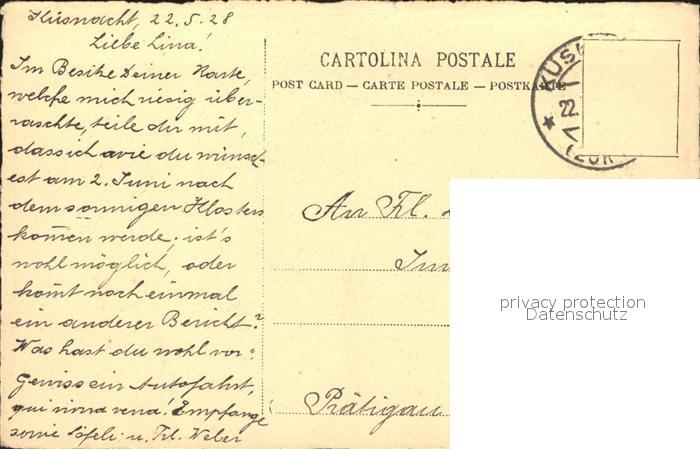 Küsnacht, 22.5.28
Liebe Lina!
Im Besitze Deiner Karte,
welche mich riesig über-
raschte, teile dir mit,
dass ich wie du wünsch-
est am 2. Juni nach
dem sonnigen Klosters
kom̄en werde; ist's
wohl möglich, oder
kom̄t noch einmal
ein anderer Bericht?
Was hast du wohl vor?
Gewiss ein Autofahrt,
qui vivra verra! Empfange
sowie u. Frl. Weber
CARTOLINA POSTALE
POST CARD — CARTE POSTALE — POSTKARTE
KÜS
22.
(ZÜR
An Frl.
Prätigau
privacy protection
Datenschutz